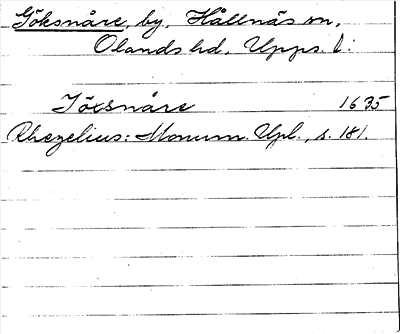 Göksnåre, by, Hållnäs sn,
Olands hd, Upps. l:
Jöxsnåre 1635
Rhezelius: Monum. Upl., s. 181.